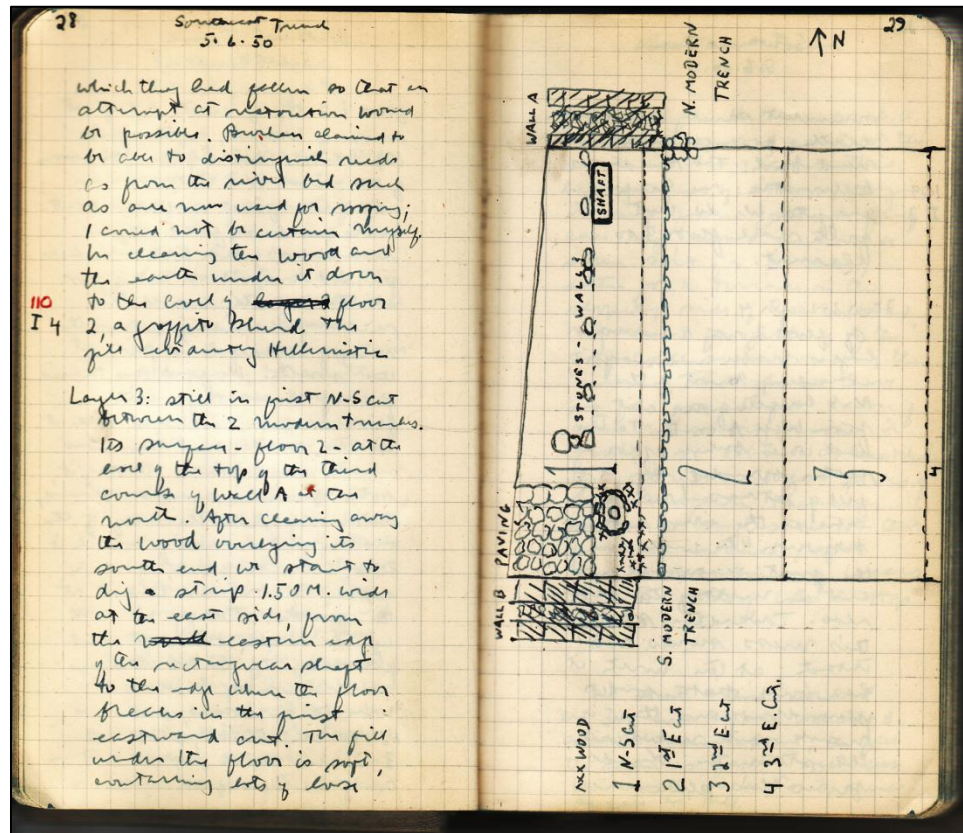 28
Southeast Trench
5·6·50
which they had fallen so that an
attempt at restoration would
be possible. claimed to
be able to distinguish reeds
as from the river bed such
as are now used for roofing;
I could not be certain myself.
In cleaning the wood and
the earth under it down
to the level of layer 3 floor
110
I 4
2, a graffito Behind the
fill evidently Hellenistic
Layer 3: still in first N-S cut
between the 2 modern trenches.
Its surface - floor 2 - at the
level of the top of the third
course of Wall A at the
north. After cleaning away
the wood overlying its
south end we start to
dig a strip 1.50 M. wide
at the east side, from
the north eastern edge
of the rectangular shaft
to the edge where the floor
breaks in the first
eastward cut. The fill
under the floor is soft,
containing lots of loose
29
N
WALL A
N. MODERN
TRENCH
SHAFT
STONES - WALL?
1
2
3
4
PAVING
WALL B
S. MODERN
TRENCH
xxx WOOD
1 N-S Cut
2 1st E Cut
3 2nd E Cut
4 3rd E. Cut.